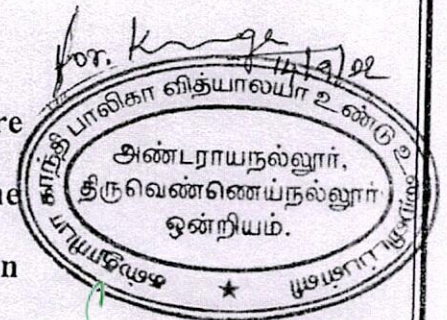 for.
14/9/22
கஸ்தூரிபா காந்தி பாலிகா வித்யாலயா உண்டு உறைவிடப்பள்ளி
அண்டராயநல்லூர்,
திருவெண்ணெய்நல்லூர்
ஒன்றியம்.
★
re
ne
n